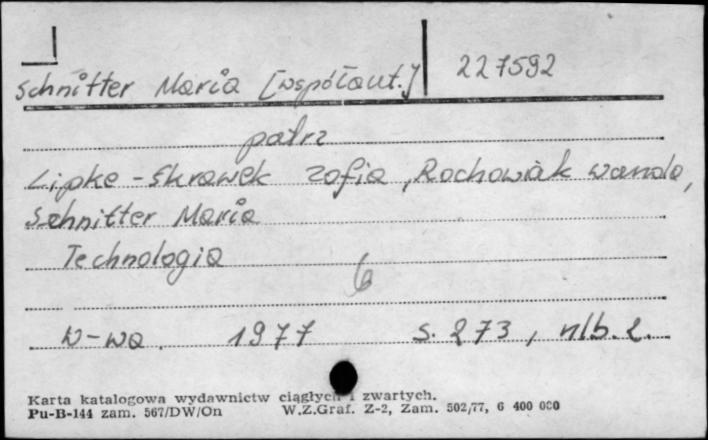 Schnitter Maria [współaut.] 227592
patrz
Lipke-Skrawek Zofia, Rochowiak Wanda,
Schnitter Maria
Technologia
6
W-wa. 1977 s. 273, nlb. 2.
Karta katalogowa wydawnictw ciągłych i zwartych.
Pu-B-144 zam. 567/DW/On W.Z.Graf. Z-2, Zam. 502/77, 6 400 000